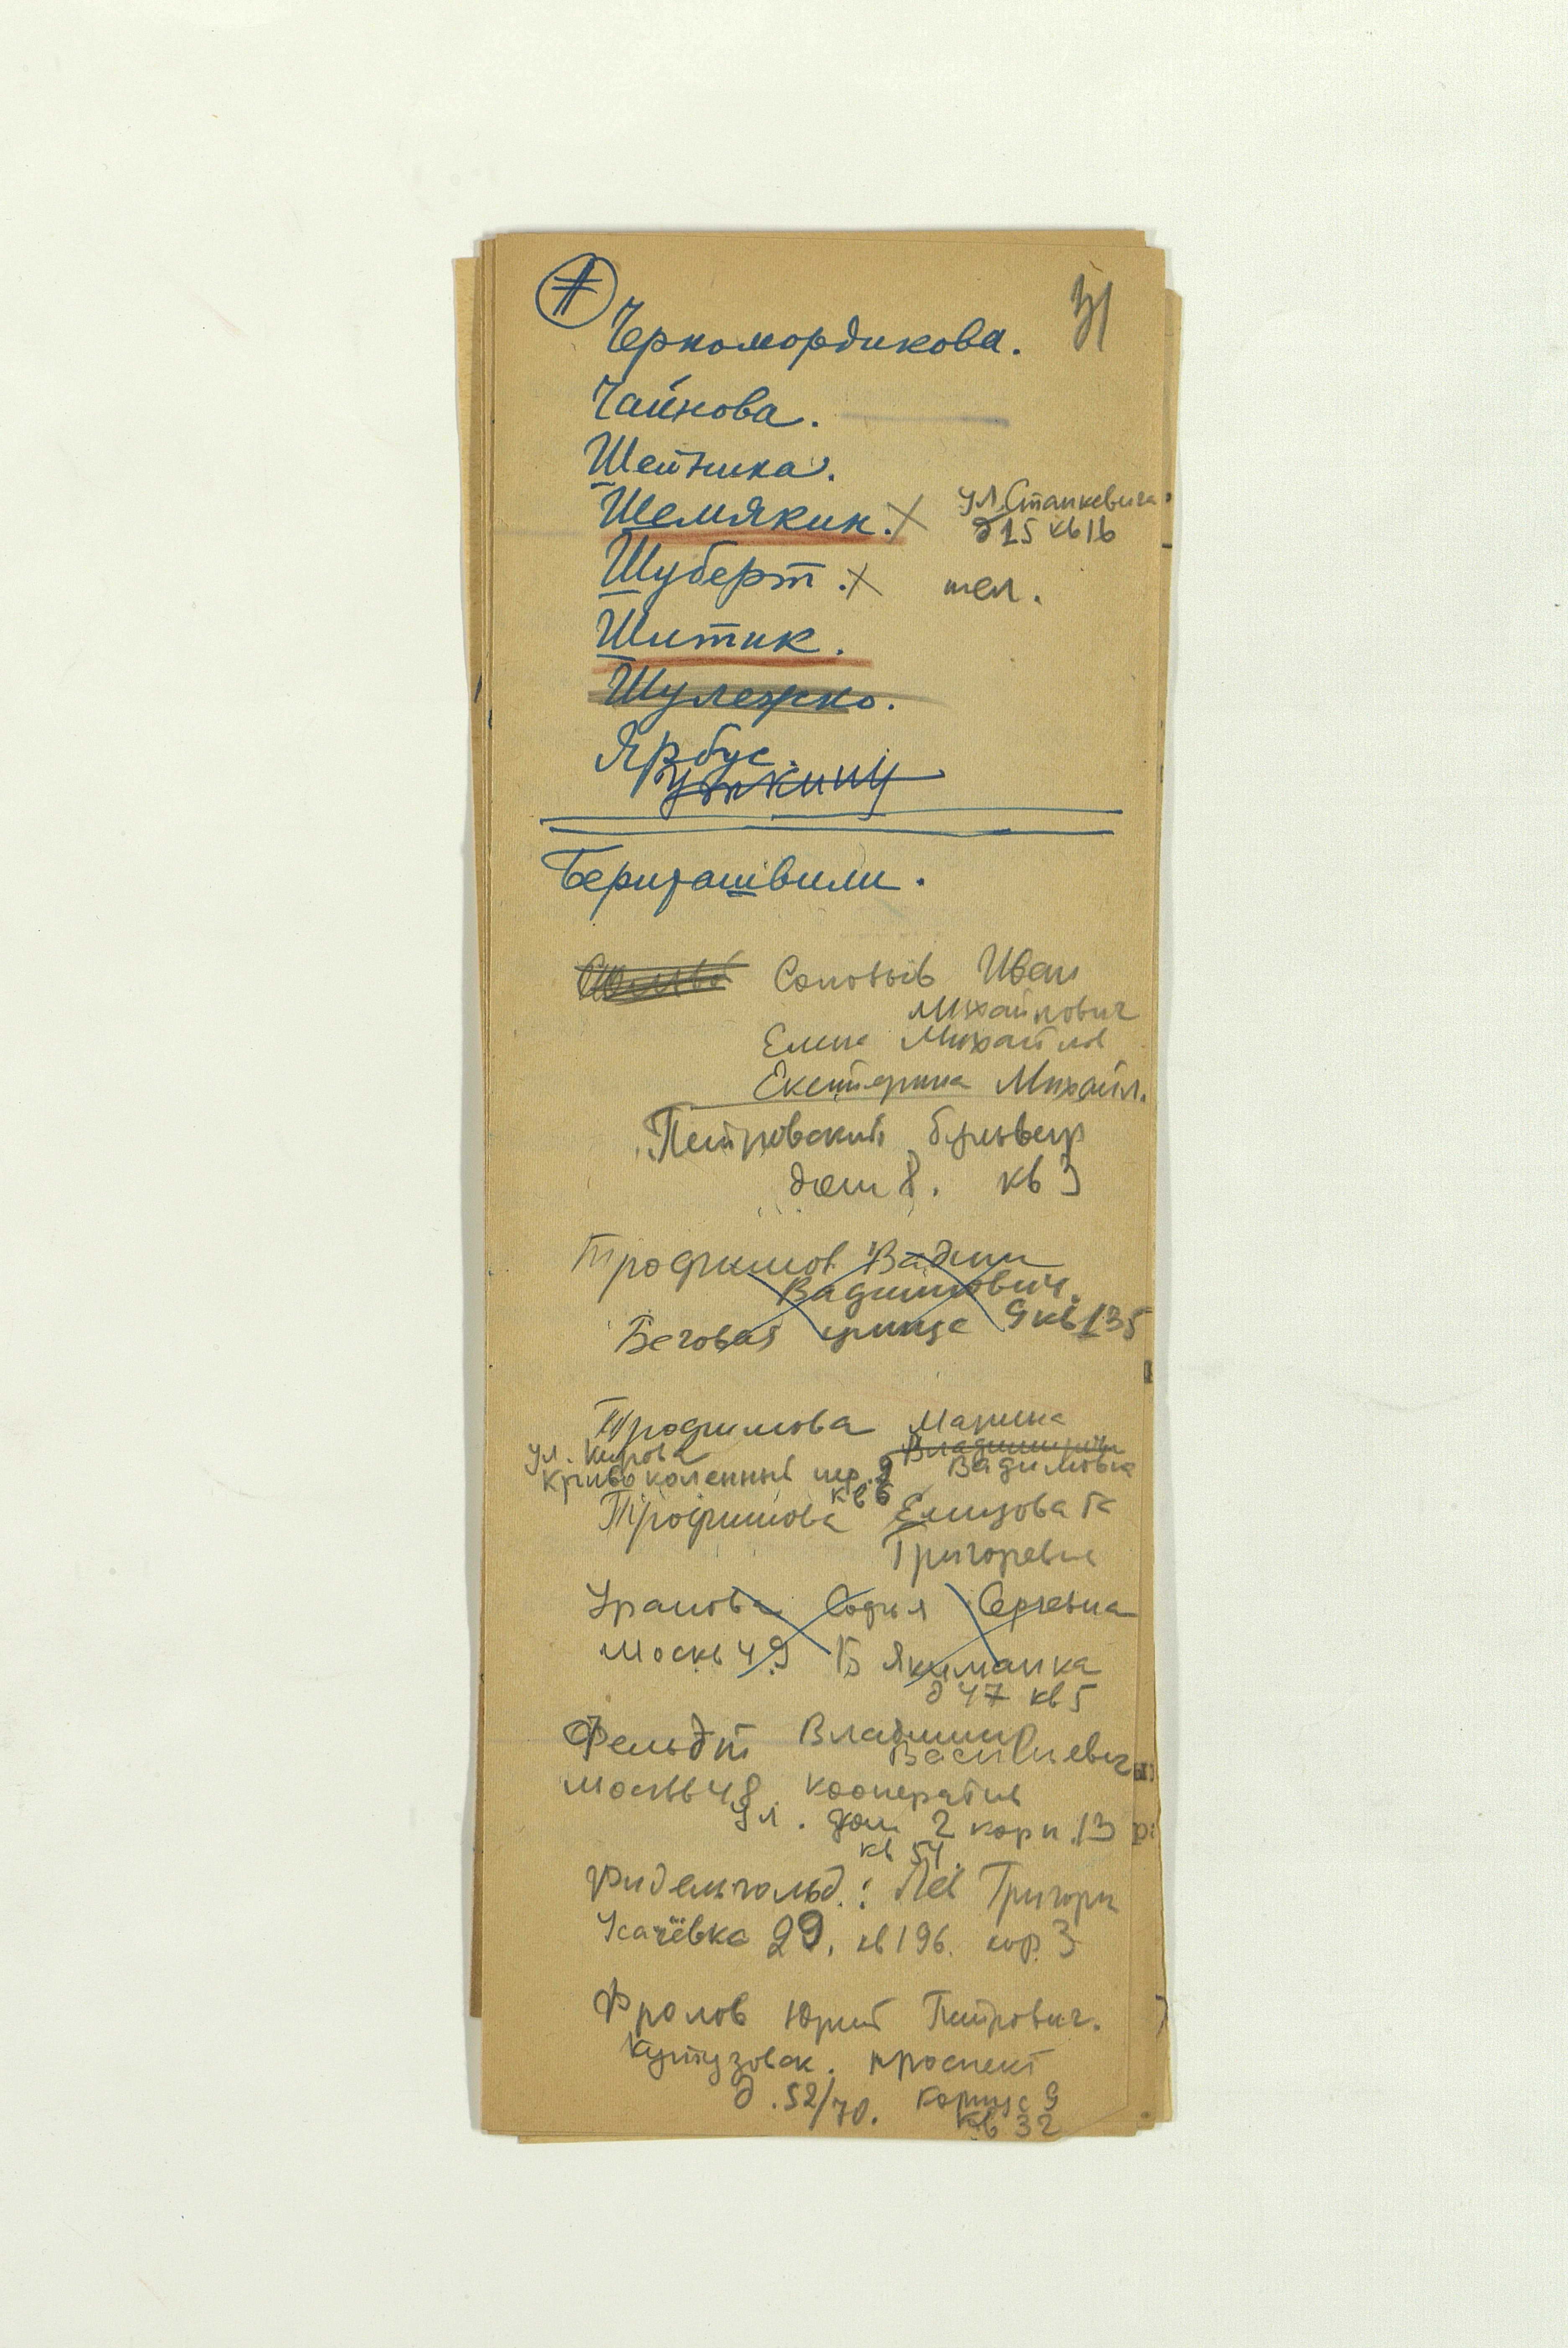 31
Черномордикова.
Чайнова.
Шейнина.
Шемякин. х ул. Станкевича
д 15 кв 16
Шуберт. х тел.
Шитик.
Шулежко.
Ярбус.
Бериташвили.
Соловьёв Иван
Михайлович
Елена Михайлов
Екатерина Михайл.
Петровский бульвар
дом 8. кв 3
Трофимов Вадим
Вадимович.
Беговая улица 9 кв 135
Трофимова Марина
ул. Кирова Владимировна
Кривоколенный пер. 9 Вадимовна
кв 6
Трофимова Елизовета
Григоревна
Уранова Софья Сергевна
Москв 49 Б Якиманка
д 47 кв 5
Фельдт Владимир
Васильевич
Москва 48 кооператив
ул. дом 2 корп. 13
кв 54.
Фидельгольд.: Лев Григори
Усачёвка 29. кв 196. кор. 3
Фролов Юрий Петрович.
Кутузовск. проспект
д. 52/70. Корпус 9
кв 32